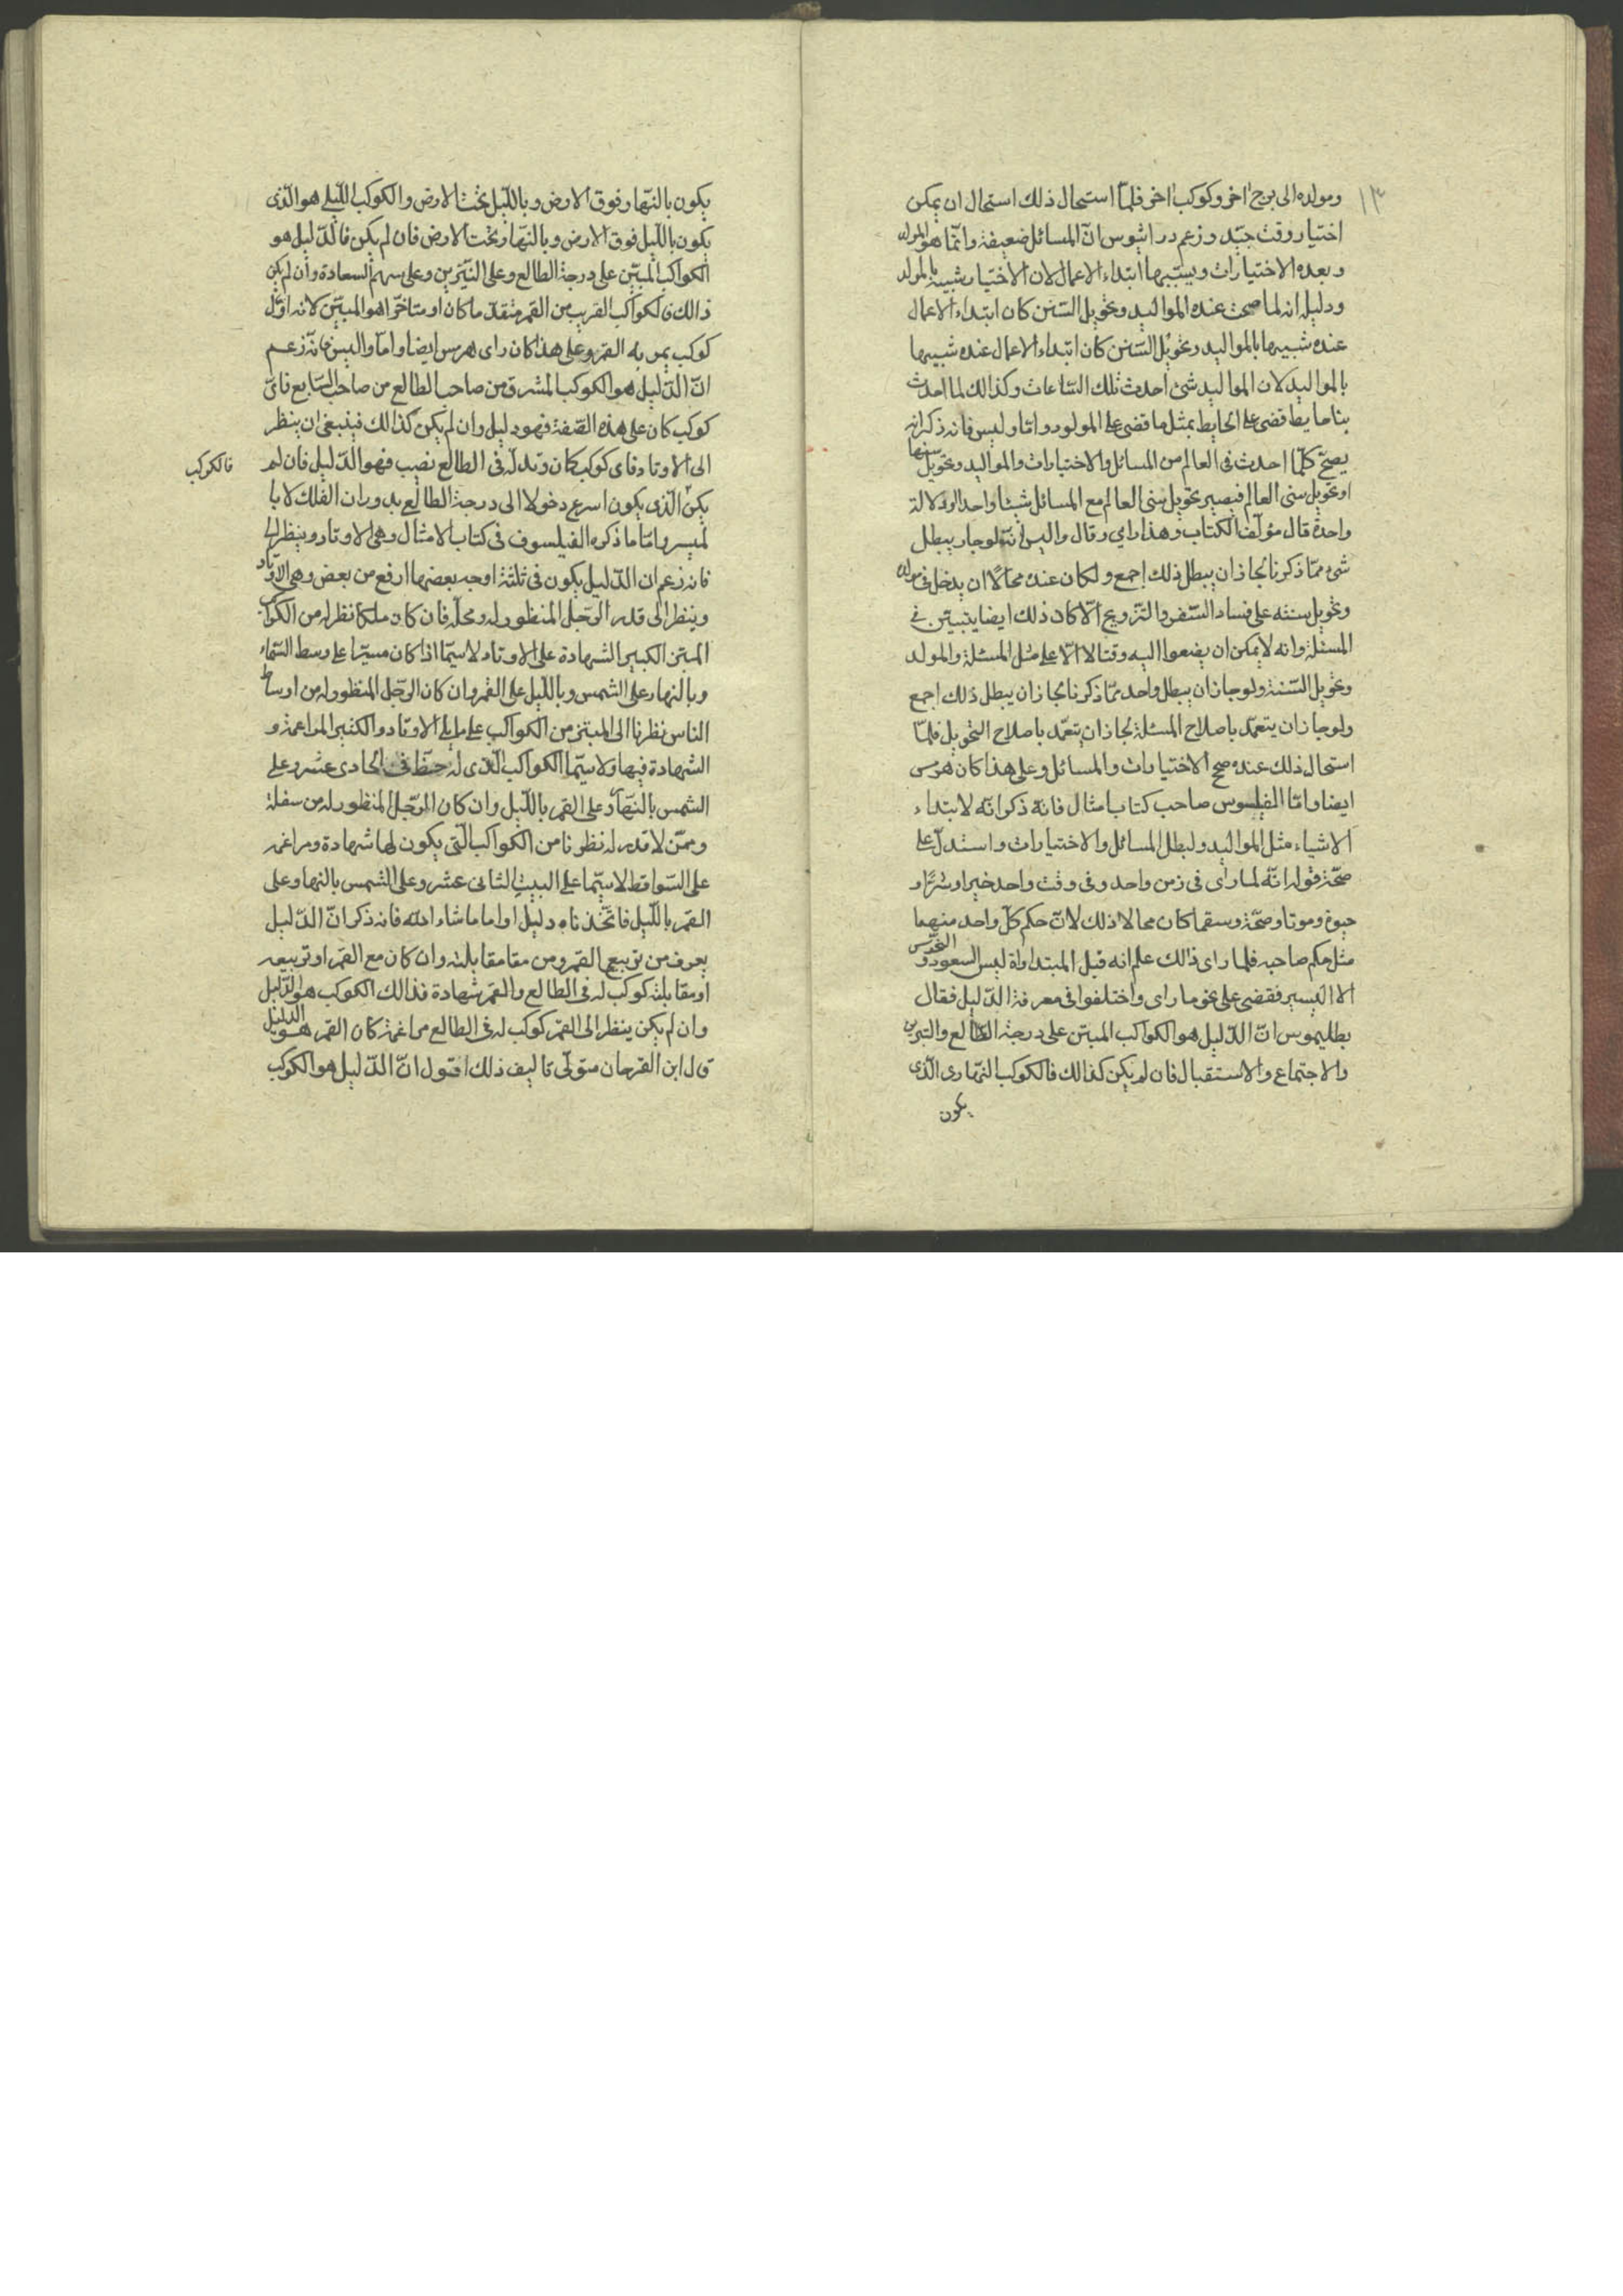 ١٣
ومولده الى برج اخر وكوكب اخر فلمّا استحال ذلك استحال ان يمكن
اختيار وقت جيّد وزعم دراثيوس انّ المسائل ضعيفة وانّما هو المولد
وبعده الاختيارات ويسبّبها ابتداء الاعمال لان الاختيار شبيه بالمولد
ودليله انه لما صحت عنده المواليد وتحويل السّنن كان ابتداء الاعمال
عنده شبيها بالمواليد وتحويل السّنن كان ابتداء الاعمال عنده شبيها
بالمواليد لان المواليد شئ احدث تلك السّاعات وكذالك لما احدث
بنا حايط قضى على الحايط بمثل ما قضى على المولود وامّا وليس فانه ذكر انه
يصحّ كلّما احدث فى العالم من المسائل والاختيارات والمواليد وتحويل سنيها
او تحويل سنى العالم فيصير تحويل سنى العالم مع المسائل شيئا واحدا ودلالة
واحدة قال مؤلّف الكتاب وهذا راي وقال واليس انّه لو جاز يبطل
شئ ممّا ذكرنا لجاز ان يبطل ذلك اجمع ولكان عنده محالًا ان يدخل فى مولد
وتحويل سنته على فساد السّفر والتزويج الّا كان ذلك ايضا يتبيّن فى
المسئلة وانه لا يمكن ان يضعوا اليه وقتا الا على مثل المسئلة والمولد
وتحويل السّنة ولو جاز ان يبطل واحد ممّا ذكرنا لجاز ان يبطل ذلك اجمع
ولو جاز ان يتعمّد باصلاح المسئلة لجاز ان يتعمّد باصلاح التحويل فلمّا
استحال ذلك عنده صح الاختيارات والمسائل وعلى هذا كان هرمس
ايضا وامّا الفيلسوس صاحب كتاب امثال فانه ذكر انّه لابتداء
الاشياء مثل المواليد وليبطل المسائل والاختيارات واستدلّ على
صحّة قوله انّه لما راى فى زمن واحد وفى وقت واحد خيرا وشرّا و
حيوة وموتا وصحّة وسقما كان محالا ذلك لانّ حكم كلّ واحد منهما
مثل حكم صاحبه فلما راى ذالك علم انه قبل المبتدا واة ليس السعود والنحوس
الا اليسير فقضى على نحو ما راى واختلفوا فى معرفة الدّليل فقال
بطليموس انّ الدّليل هو الكواكب المبتز على درجة الطالع والنيرين
والاجتماع والاستقبال فان لم يكن كذالك فالكوكب النهارى الّذى
يكون
يكون بالنّهار فوق الارض وباللّيل تحت الارض والكوكب اللّيلى هو الّذى
يكون باللّيل فوق الارض وبالنّهار تحت الارض فان لم يكن فالدّليل هو
الكواكب المبتز على درجة الطالع وعلى النيّرين وعلى سهم السعادة وان لم يكن
ذالك فالكواكب القريب من القمر متقدّما كان او متاخّرا هو المبتز لانه اوّل
كوكب يمر به القمر وعلى هذا كان راى هرمس ايضا وامّا واليس فانّه زعم
انّ الدّليل هو الكوكب المشرق من صاحب الطالع من صاحب السّابع فاىّ
كوكب كان على هذه الصّفة فهو دليل وان لم يكن كذالك فينبغى ان ينظر
الى الاوتاد فاى كوكب كان وتد له فى الطالع نصيب فهو الدّليل فان لم
فالكوكب
يكن الّذى يكون اسرع دخولا الى درجة الطالع بدوران الفلك لا با
لمسير وامّا ما ذكره الفيلسوف فى كتاب الامثال وهى الاوتاد وينظر الى
فانه زعم ان الدّليل يكون فى ثلثة اوجه بعضها ارفع من بعض وهى الاوتاد
وينظر الى قدر الرّجل المنظور له ومحلّه فان كان ملكا نظر له من الكواكب
المبتز الكبير الشهادة على الاوتاد لا سيّما اذا كان مبتزا على وسط السّماء
وبالنهار على الشمس وباللّيل على القمر وان كان الرّجل المنظور له من اوساط
الناس نظرنا الى المبتز من الكواكب على ما يلى الاوتاد والكثير المزاعمة و
الشهادة فيها ولا سيّما الكواكب الّذى له حظّا فى الحادى عشر وعلى
الشمس بالنّهار وعلى القمر باللّيل وان كان الرّجل المنظور له من سفلة
وممّن لا قدر له نظرنا من الكواكب الّتى يكون لها شهادة ومزاعمة
على السّواقط لا سيّما على البيت الثانى عشر وعلى الشمس بالنهار وعلى
القمر باللّيل فاتّخذناه دليلا واما ما شاء الله فانه ذكر انّ الدّليل
يعرف من تربيع القمر ومن مقامقابلته وان كان مع القمر او تربيعه
او مقابلته كوكب له فى الطالع والقمر شهادة فذالك الكوكب هو الدّليل
وان لم يكن ينظر الى القمر كوكب له فى الطالع مزاعمة كان القمر هو الدليل
قال ابن الفرحان متولّى تاليف ذلك اقول انّ الدّليل هو الكوكب